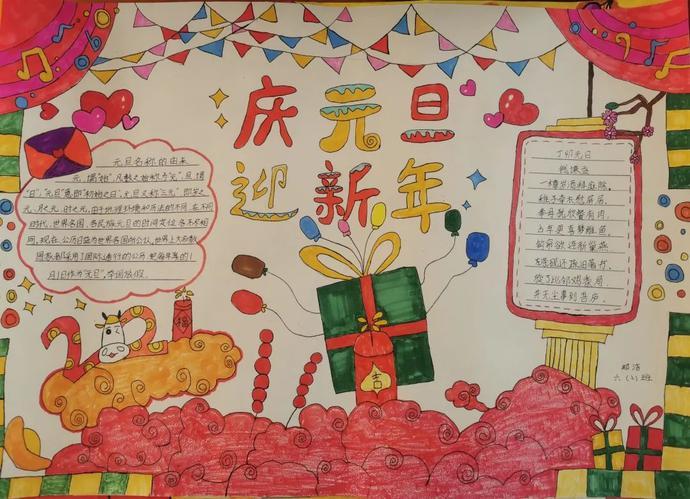 庆元旦
迎新年
元旦名称的由来
元，谓"始"，凡数之始称为"元"；旦，谓
"日"；"元旦"意即"初始之日"。元旦又称"三元"，即岁之
元、月之元、时之元。由于地理环境和历法的不同，在不同
时代，世界各国、各民族元旦的时间定位各不相
同。现在，公历日益为世界各国所公认，世界上大多数
国家都采用了国际通行的公历，把每年的1
月1日作为"元旦"，举国放假。
丁卯元日
钱谦益
一樽岁酒拜庭除，
稚子牵衣慰屏居。
奉母犹欣餐有肉，
占年更喜梦维鱼。
钩帘欲迎新巢燕，
涤砚还疏旧著书。
旋了比邻鸡黍局，
并无尘事到吾庐。
福
吉
六（2）班